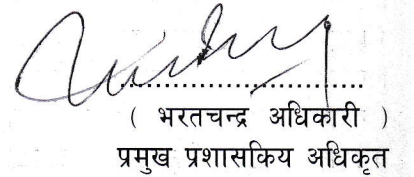 ........................................
( भरतचन्द्र अधिकारी )
प्रमुख प्रशासकिय अधिकृत